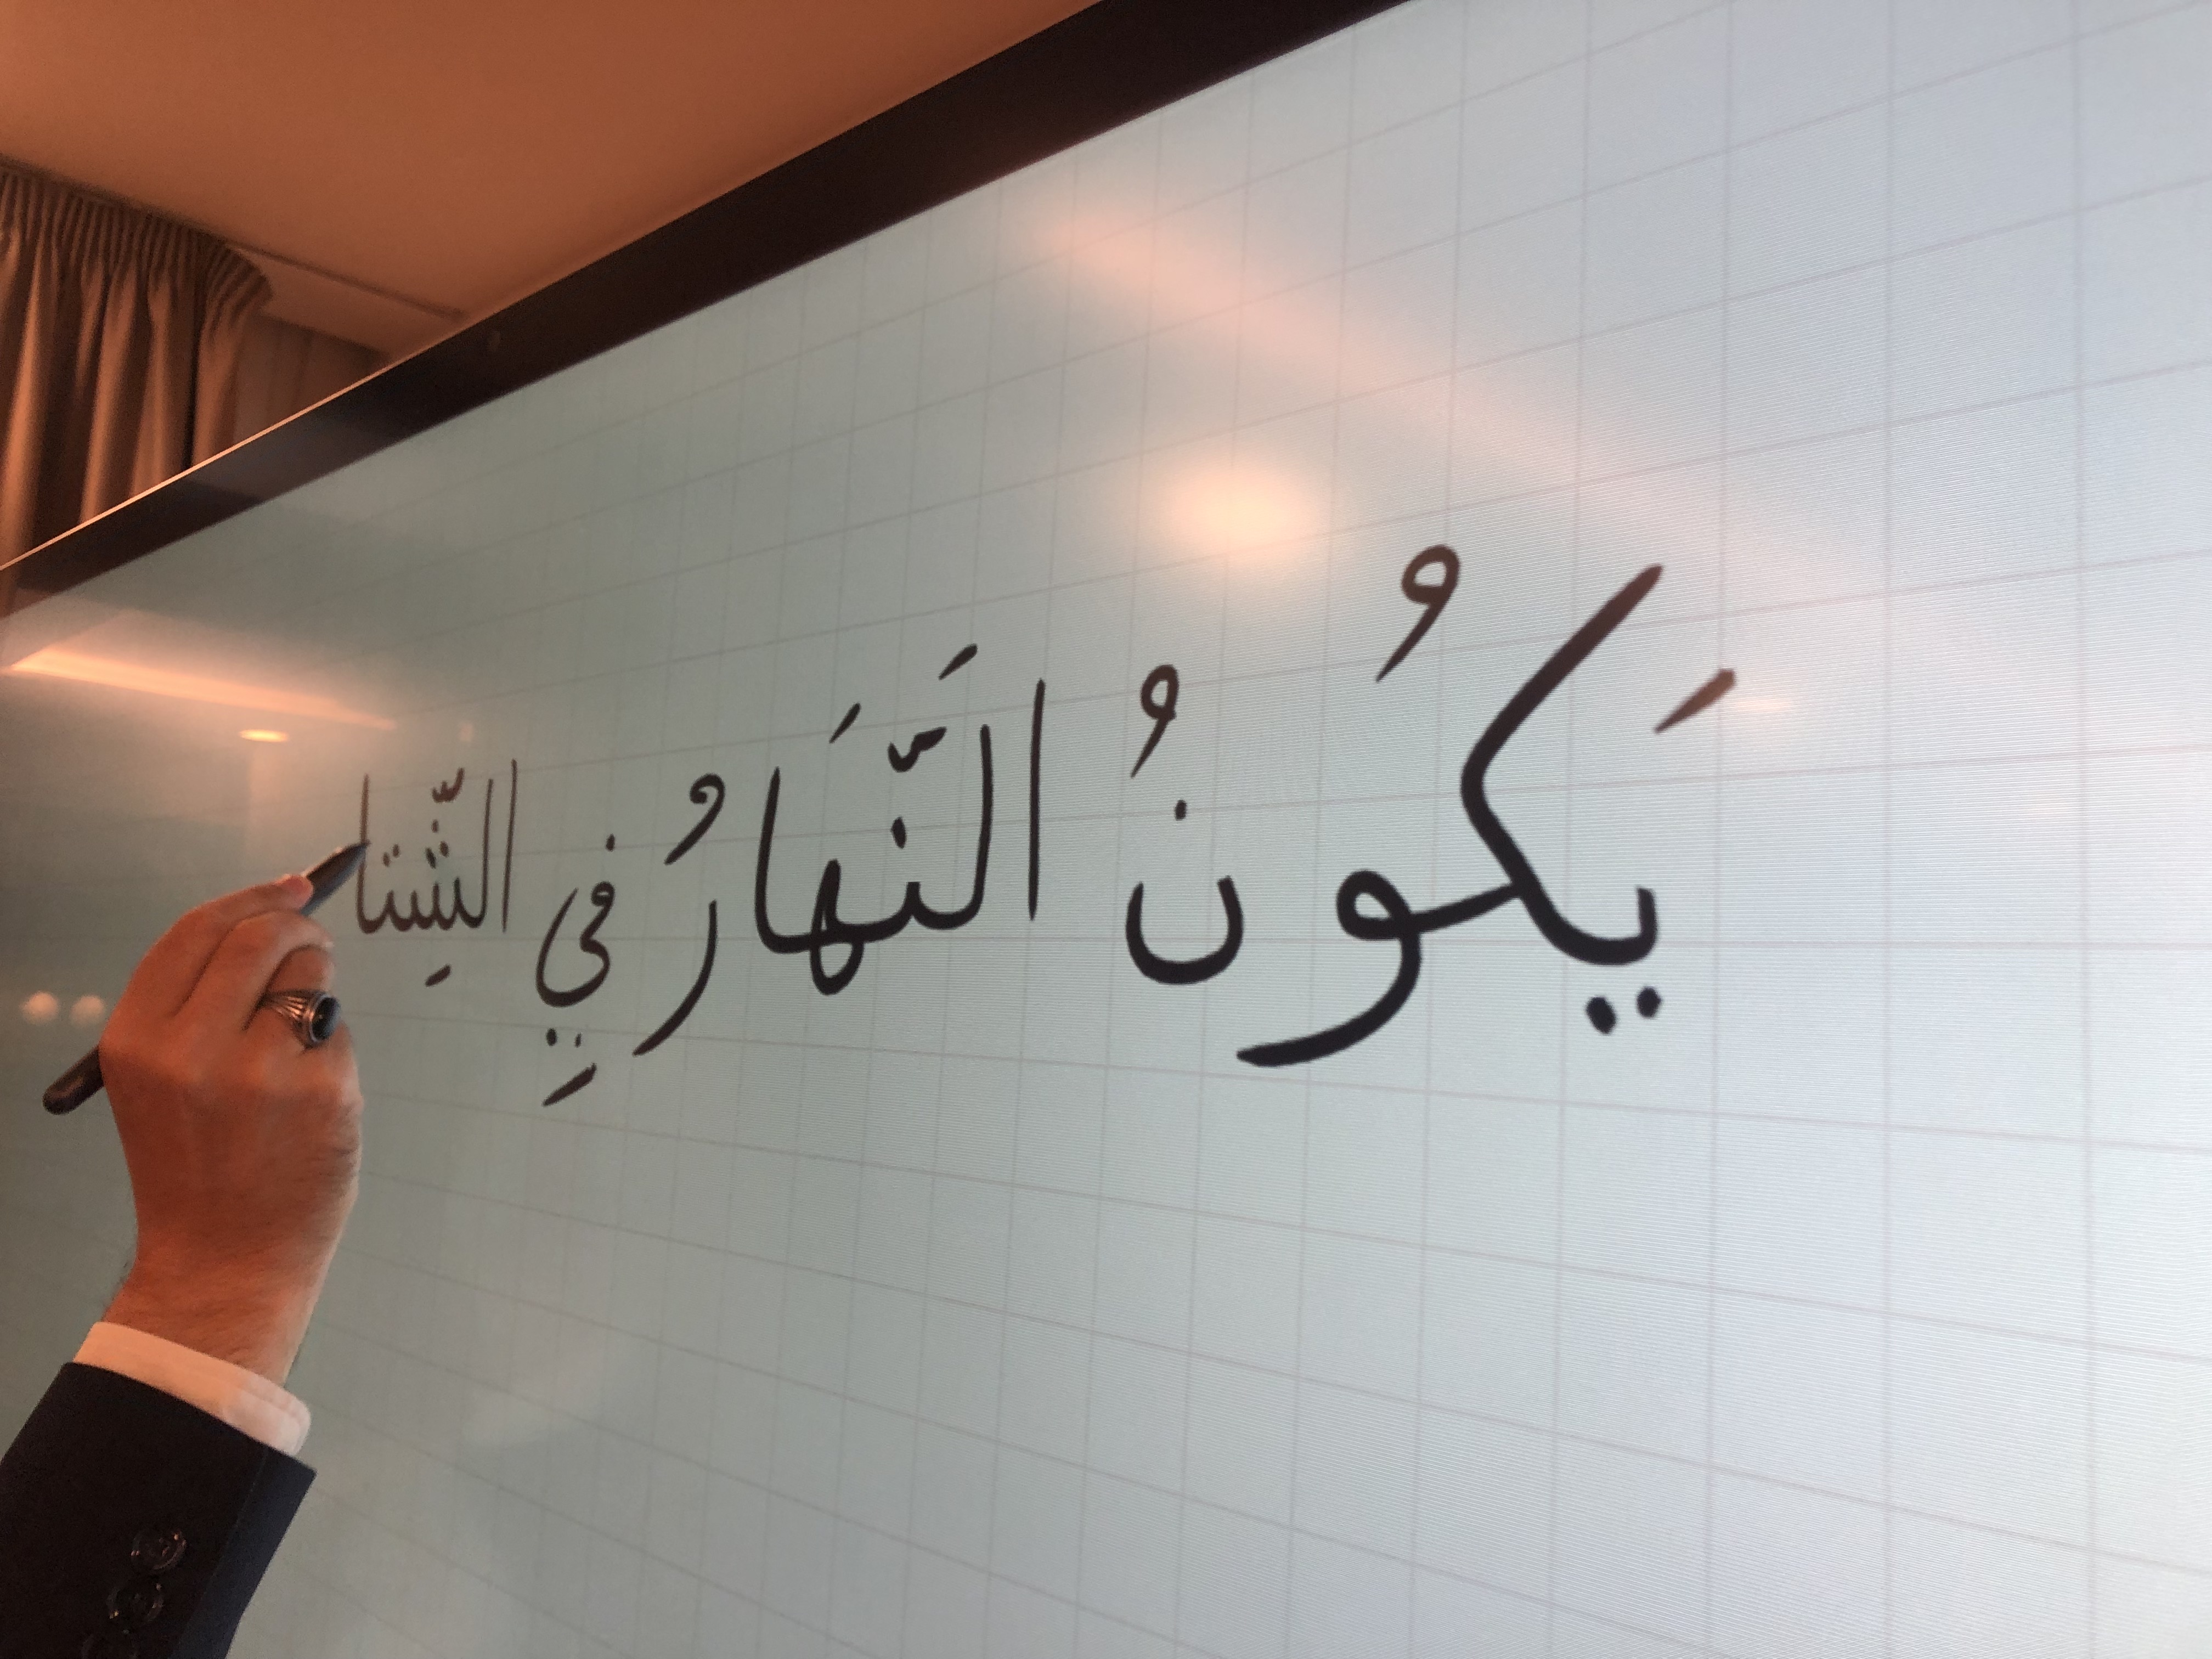 يَكُونُ النَّهَارُ فِي الشِّتا